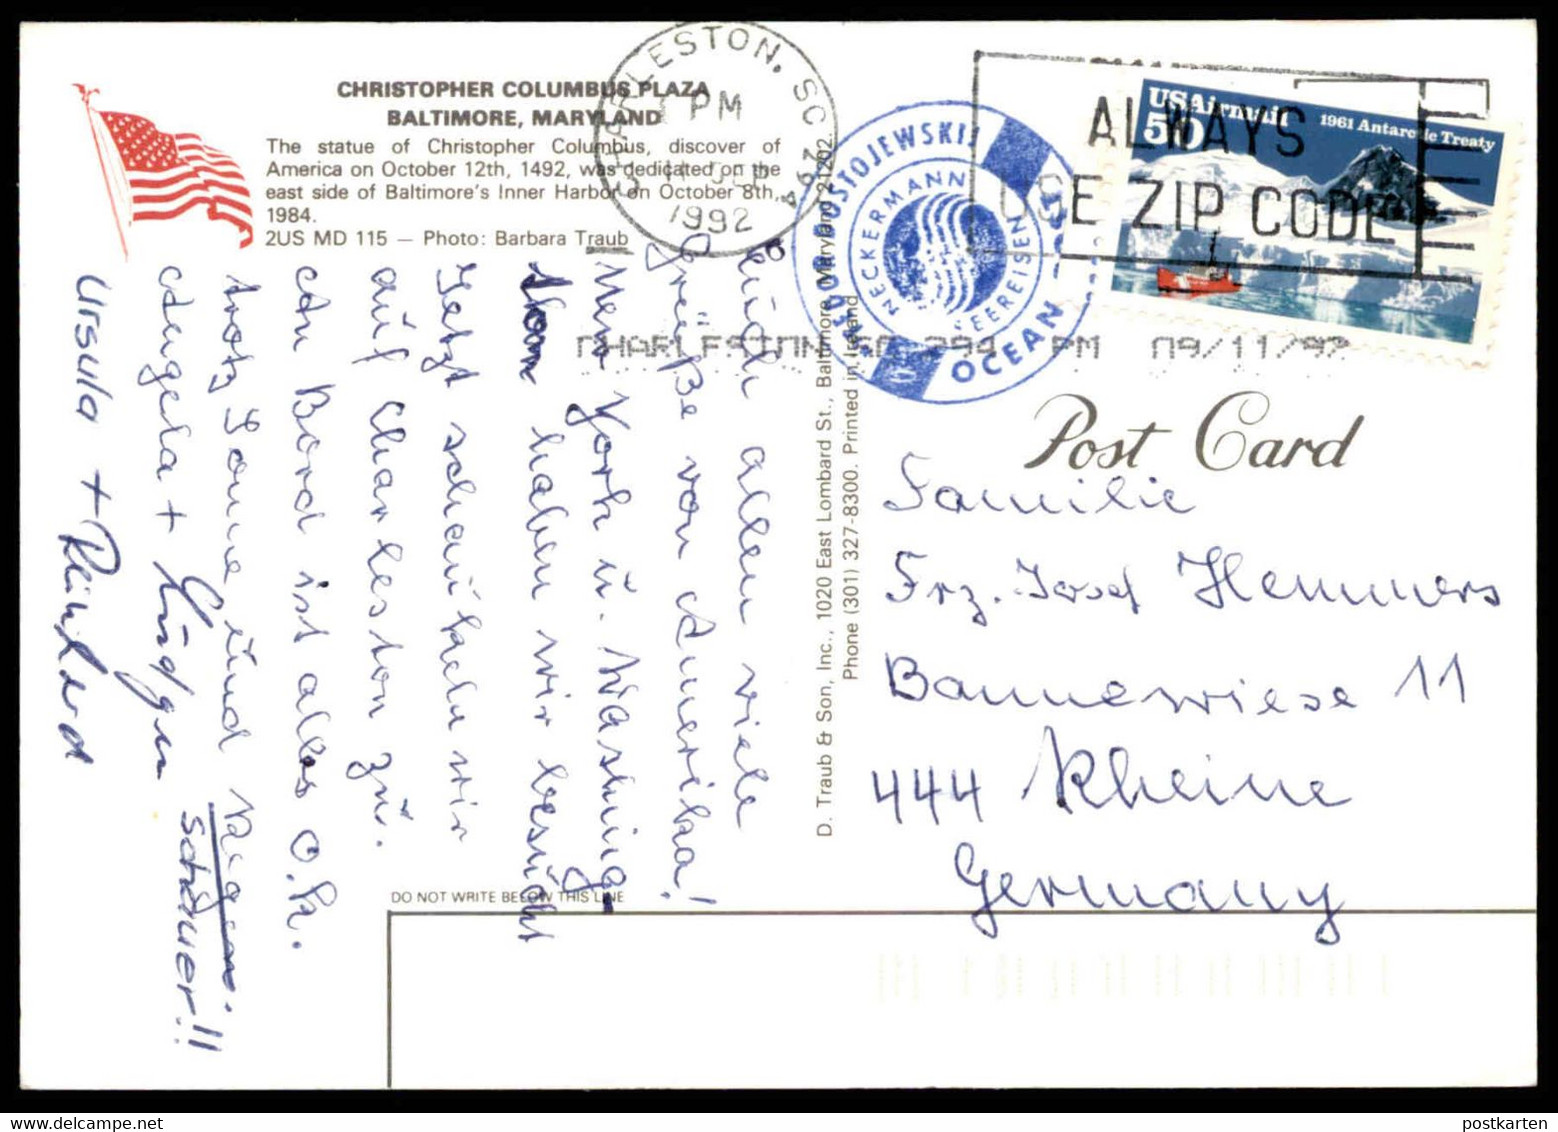 CHRISTOPHER COLUMBUS PLAZA
BALTIMORE, MARYLAND
The statue of Christopher Columbus, discover of
America on October 12th, 1492, was dedicated on the
east side of Baltimore's Inner Harbor on October 8th,
1984.
2US MD 115 — Photo: Barbara Traub
Euch allen viele
Grüße von Amerika!
New York u. Washing
haben wir besucht
Jetzt schaukeln wir
auf Charleston zu.
An Bord ist alles o.k.
trotz Sonne und Regen.
schauer!!
Angela + Jürgen
Ursula + Reinhard
DO NOT WRITE BELOW THIS LINE
D. Traub & Son, Inc., 1020 East Lombard St., Baltimore, Maryland 21202
Phone (301) 327-8300. Printed in Ireland
CHARLESTON, SC 294
PM
SEP
1992
DOSTOJEWSKIJ
NECKERMANN
SEEREISEN
OCEAN
ALWAYS
USE ZIP CODE
USAirmail
50
1961 Antarctic Treaty
CHARLESTON SC 294 PM 09/11/92
Post Card
Familie
Frz. Josef Hemmers
Bannewiese 11
444 Rheine
Germany
postkarten